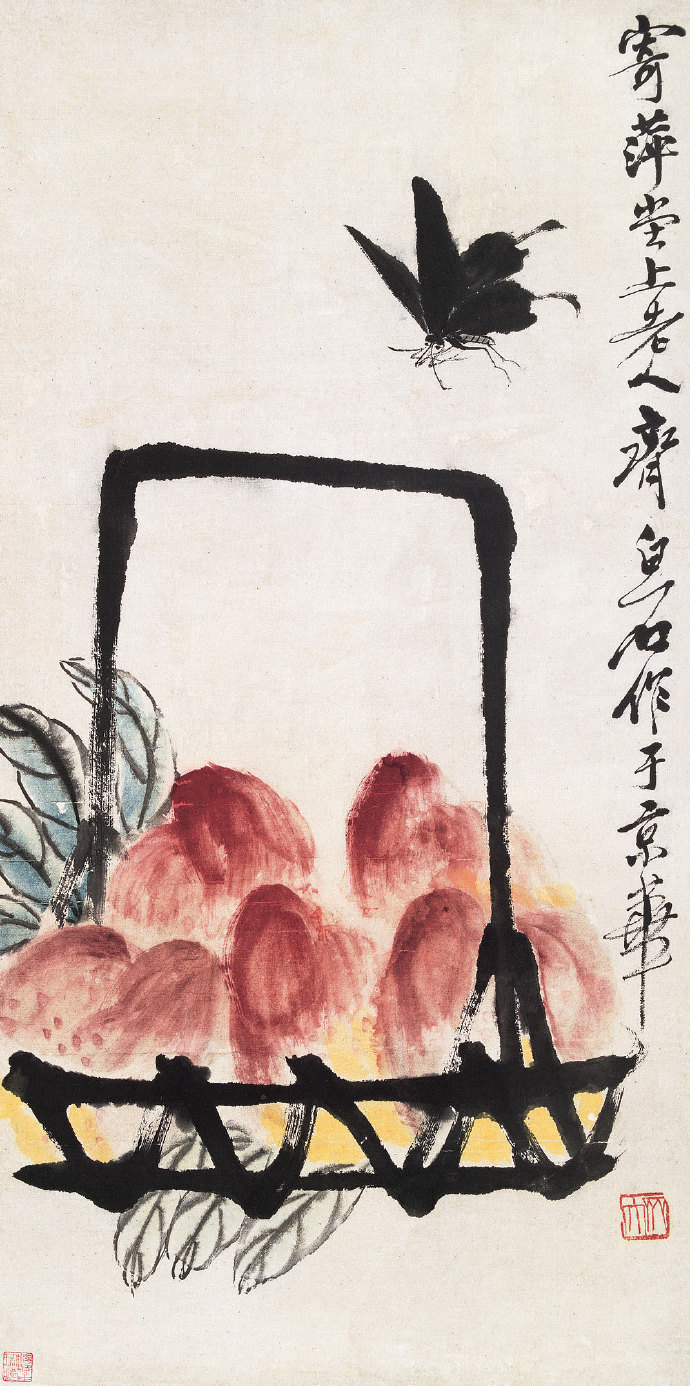 寄萍堂上老人齊白石作于京華
木人